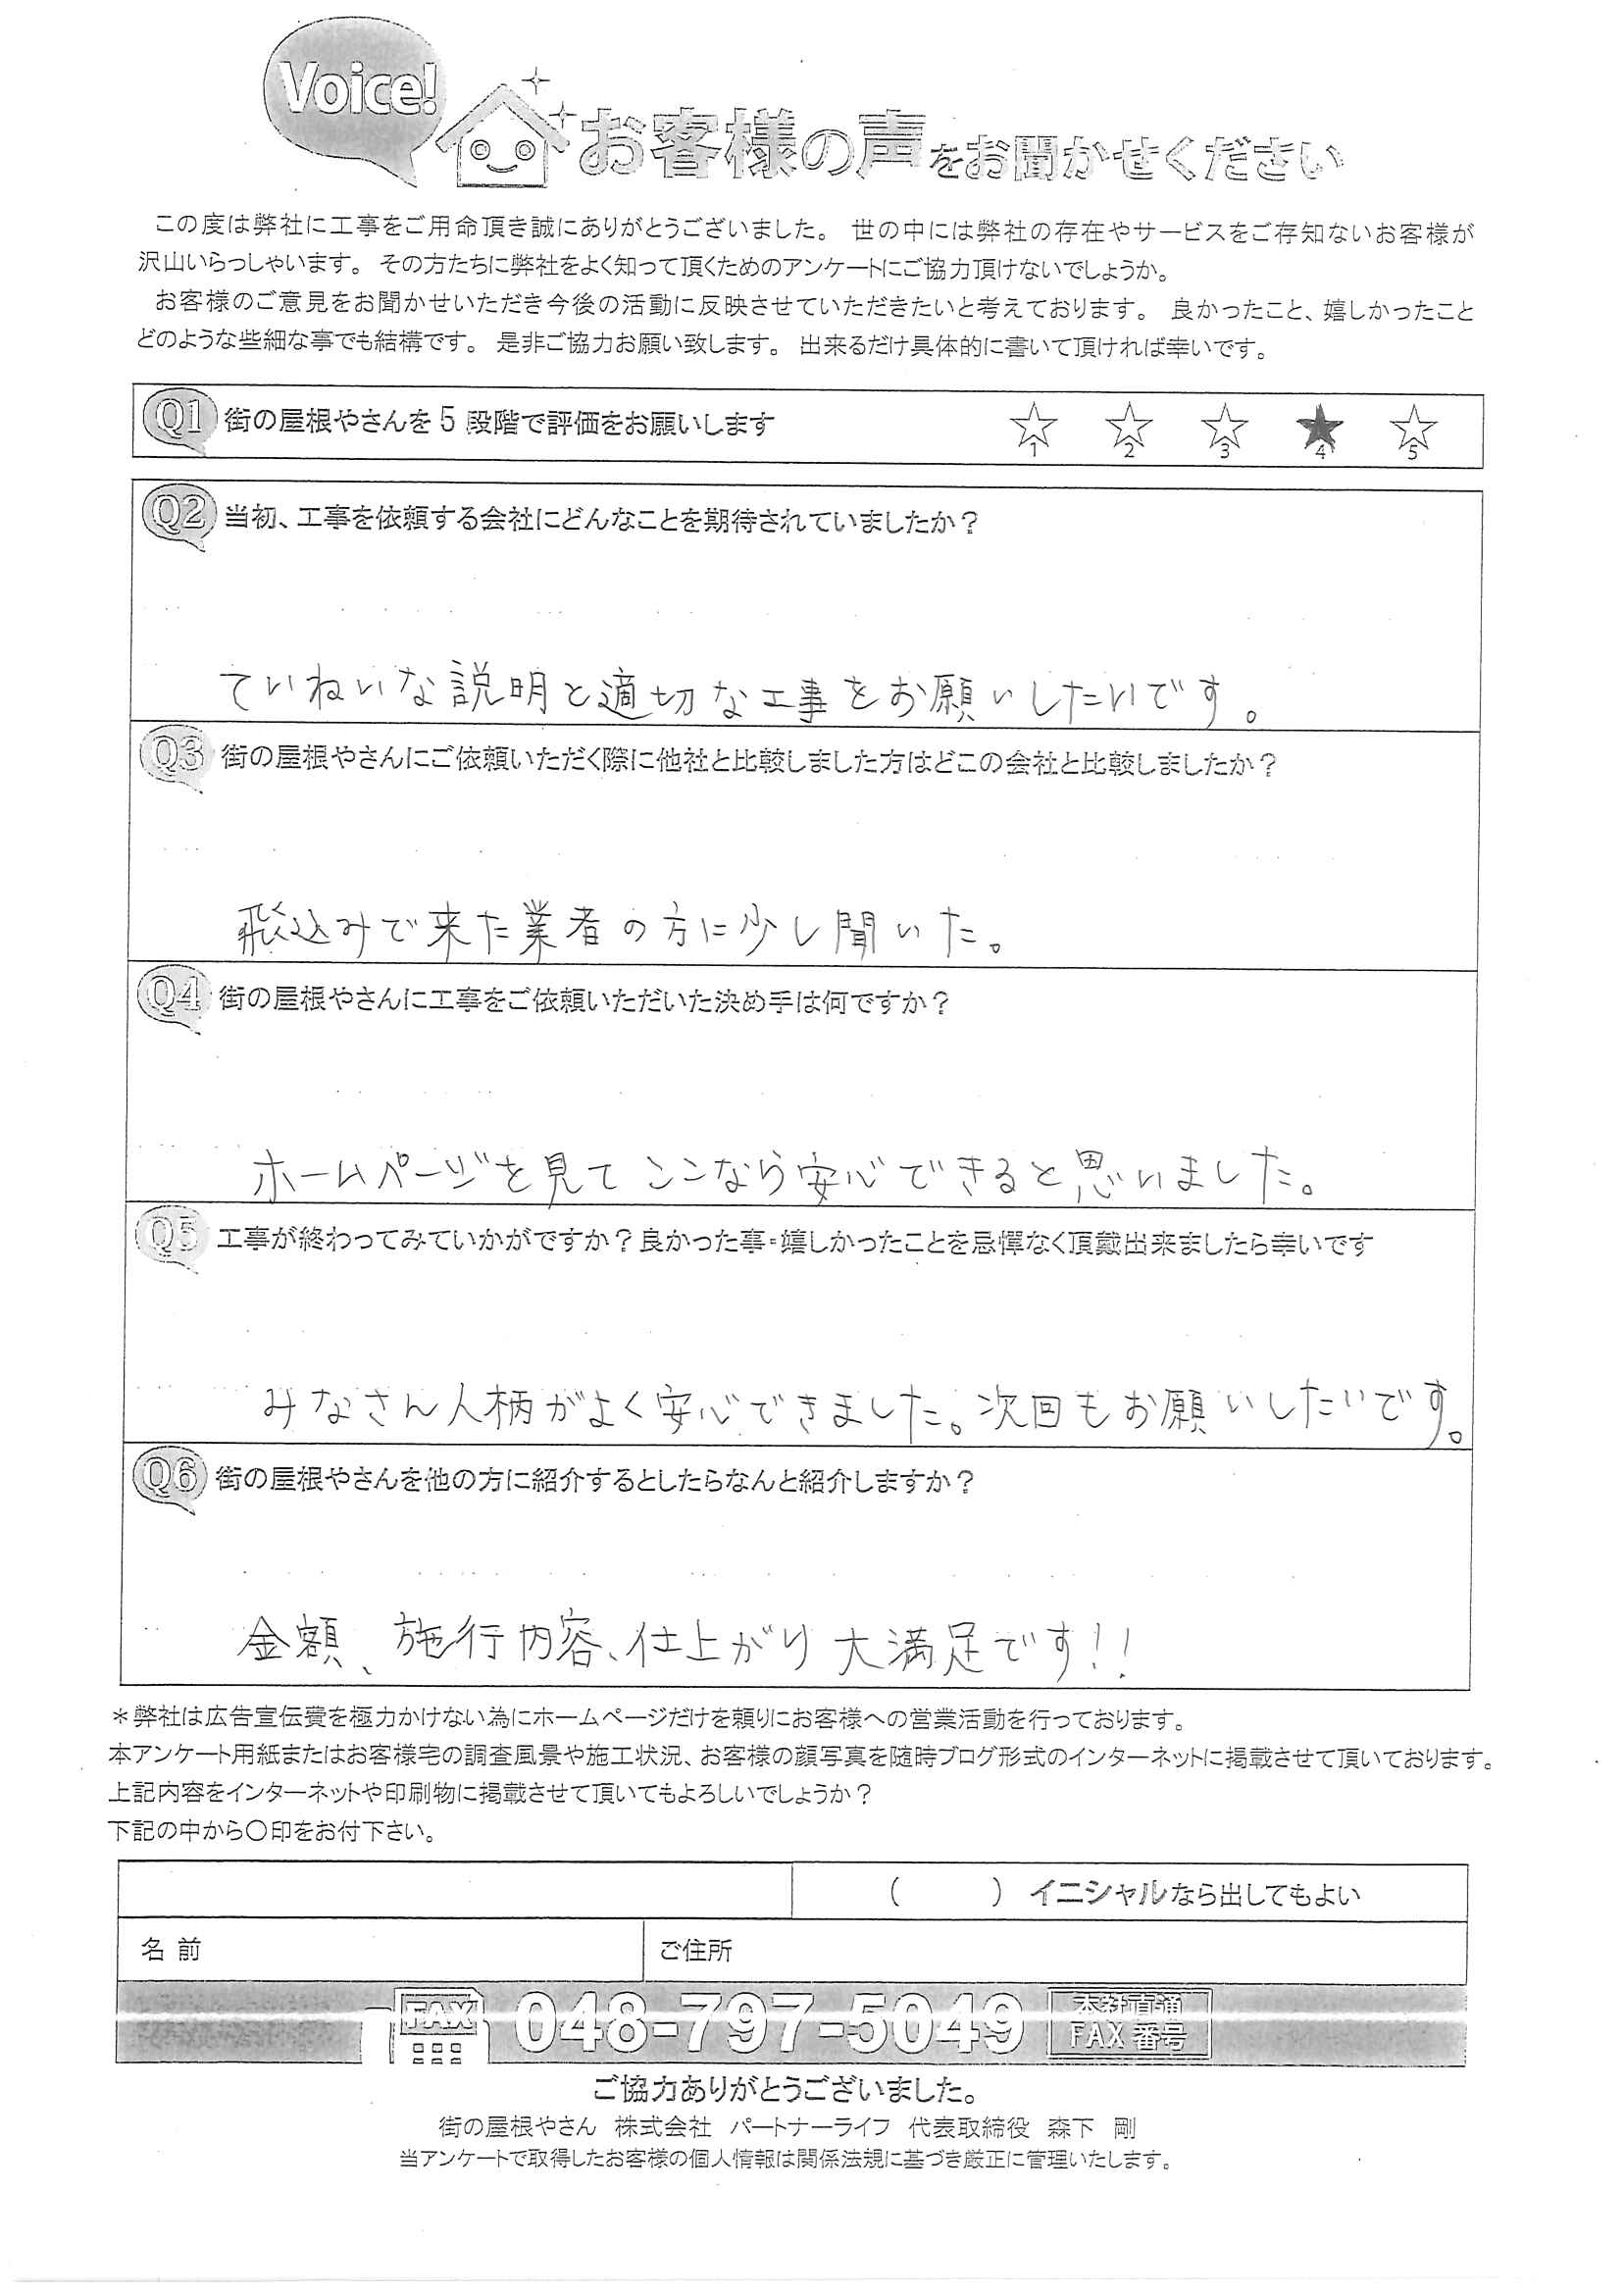 Voice!
お客様の声をお聞かせください
この度は弊社に工事をご用命頂き誠にありがとうございました。 世の中には弊社の存在やサービスをご存知ないお客様が
沢山いらっしゃいます。 その方たちに弊社をよく知って頂くためのアンケートにご協力頂けないでしょうか。
お客様のご意見をお聞かせいただき今後の活動に反映させていただきたいと考えております。 良かったこと、嬉しかったこと
どのような些細な事でも結構です。 是非ご協力お願い致します。 出来るだけ具体的に書いて頂ければ幸いです。
Q1 街の屋根やさんを5段階で評価をお願いします ☆1 ☆2 ☆3 ★4 ☆5
Q2 当初、工事を依頼する会社にどんなことを期待されていましたか?
ていねいな説明と適切な工事をお願いしたいです。
Q3 街の屋根やさんにご依頼いただく際に他社と比較しました方はどこの会社と比較しましたか?
飛込みで来た業者の方に少し聞いた。
Q4 街の屋根やさんに工事をご依頼いただいた決め手は何ですか?
ホームページを見てここなら安心できると思いました。
Q5 工事が終わってみていかがですか?良かった事・嬉しかったことを忌憚なく頂戴出来ましたら幸いです
みなさん人柄がよく安心できました。次回もお願いしたいです。
Q6 街の屋根やさんを他の方に紹介するとしたらなんと紹介しますか?
金額、施行内容、仕上がり大満足です!!
*弊社は広告宣伝費を極力かけない為にホームページだけを頼りにお客様への営業活動を行っております。
本アンケート用紙またはお客様宅の調査風景や施工状況、お客様の顔写真を随時ブログ形式のインターネットに掲載させて頂いております。
上記内容をインターネットや印刷物に掲載させて頂いてもよろしいでしょうか?
下記の中から〇印をお付下さい。
( ) イニシャルなら出してもよい
名前 ご住所
FAX 048-797-5049 本社直通
FAX番号
ご協力ありがとうございました。
街の屋根やさん 株式会社 パートナーライフ 代表取締役 森下 剛
当アンケートで取得したお客様の個人情報は関係法規に基づき厳正に管理いたします。